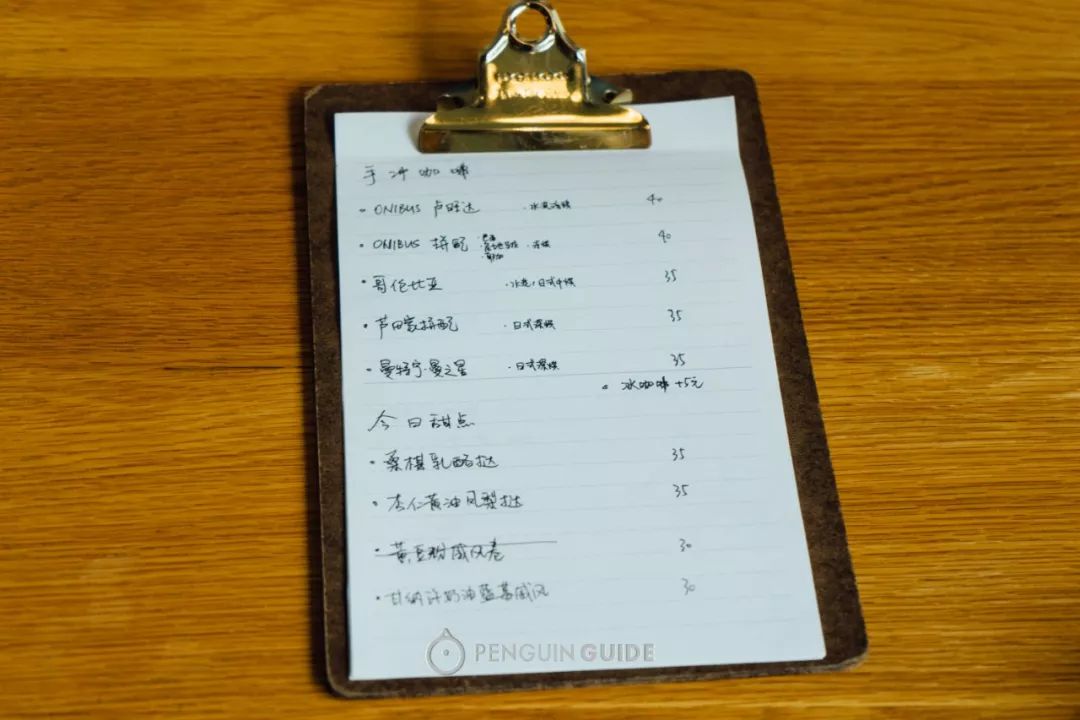 手冲咖啡
• ONIBUS 卢旺达 · 水洗浅焙 40
• ONIBUS 拼配 · 浅焙 40
• 哥伦比亚 · 水洗 · 日式中焙 35
• 芦田家拼配 · 日式深焙 35
• 曼特宁·曼之星 · 日式深焙 35
• 冰咖啡 +5元
今日甜点
• 桑椹乳酪挞 35
• 杏仁黄油凤梨挞 35
• 黄豆粉戚风卷 30
• 甘纳许奶油蓝莓戚风 30
PENGUIN GUIDE